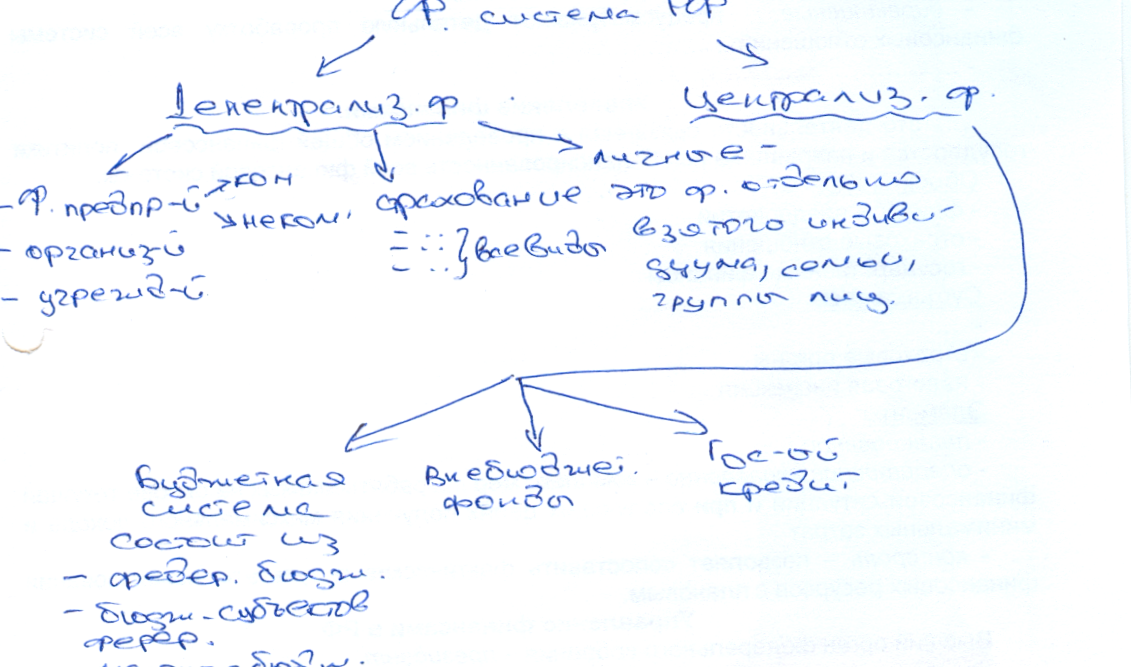 Ф. система РФ
Децентрализ. ф.
Централиз. ф.
- Ф. предпр-й
ком
неком.
- организ-й
- учрежд-й
страхование
все виды
личные -
это ф. отдельно
взятого индиви-
дуума, семьи,
группы лиц.
Бюджетная
система
состоит из
- федер. бюдж.
- бюдж. субъектов
федер.
Внебюджет.
фонды
Гос-ый
кредит